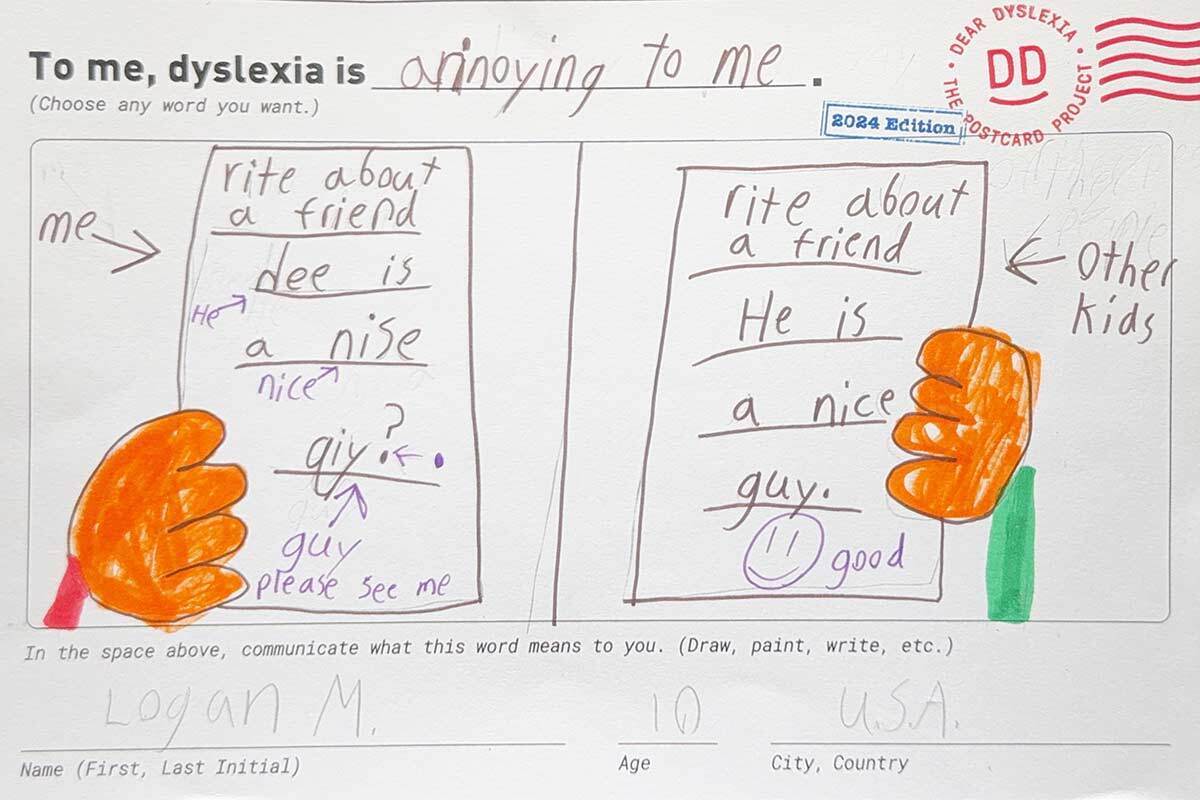 To me, dyslexia is annoying to me.
(Choose any word you want.)
DEAR DYSLEXIA
DD
THE POSTCARD PROJECT
2024 Edition
me
rite about
a friend
dee is
He
a nise
nice
qiy?
.
guy
please see me
rite about
a friend
He is
a nice
guy.
good
Other
kids
In the space above, communicate what this word means to you. (Draw, paint, write, etc.)
Logan M.
10
U.S.A.
Name (First, Last Initial)
Age
City, Country